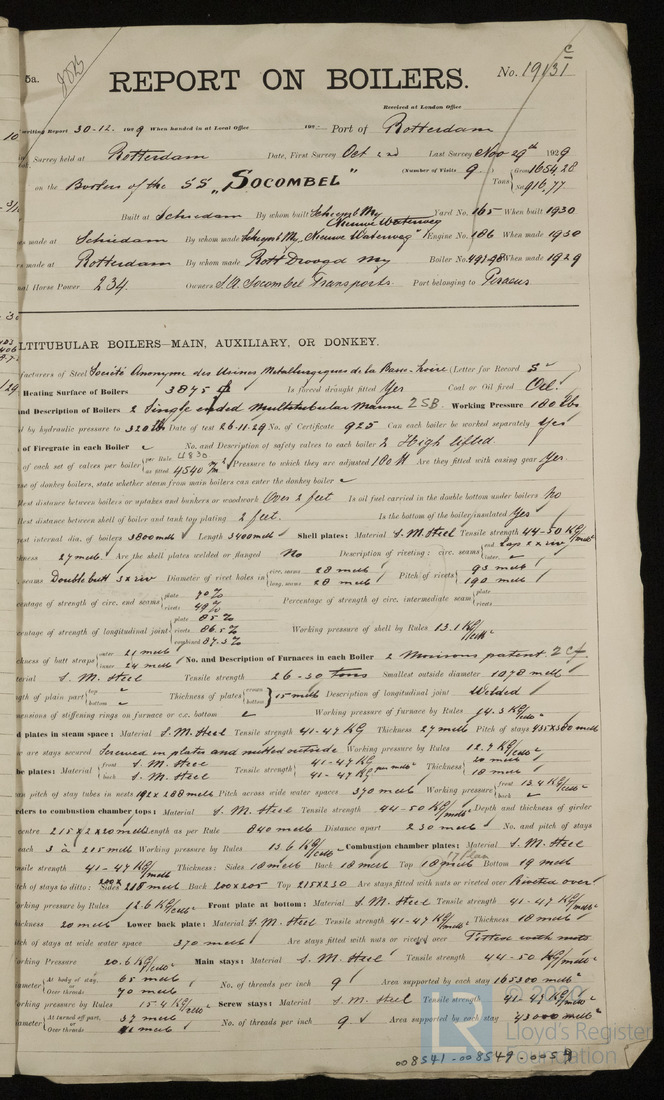 5a.
REPORT ON BOILERS.
No. 19131 c
Received at London Office
writing Report 30-12. 1929 When handed in at Local Office 192 Port of Rotterdam
Survey held at Rotterdam Date, First Survey Oct 2nd Last Survey Nov 29th 1929
(Number of Visits 9.) Gross 1654,28
on the Boilers of the SS „SOCOMBEL" Tons Net 916,77
Built at Schiedam By whom built Scheepsb My Nieuwe Waterweg Yard No. 165 When built 1930
es made at Schiedam By whom made Scheepsb My „Nieuwe Waterweg" Engine No. 186 When made 1930
rs made at Rotterdam By whom made Rott Droogd My Boiler No. 497-98 When made 1929
nal Horse Power 234. Owners S.A. Socombel Transports. Port belonging to Piraeus
LTITUBULAR BOILERS—MAIN, AUXILIARY, OR DONKEY.
facturers of Steel Société Anonyme des Usines Metallurgiques de la Basse-Loire (Letter for Record S
Heating Surface of Boilers 3875 Is forced draught fitted Yes Coal or Oil fired Oil.
and Description of Boilers 2 Single ended Multitubular Marine 2SB Working Pressure 180 lbs
d by hydraulic pressure to 320 lb Date of test 26.11.29 No. of Certificate 925 Can each boiler be worked separately Yes
of Firegrate in each Boiler No. and Description of safety valves to each boiler 2 High lifted
of each set of valves per boiler per Rule 4830 as fitted 4540 Pressure to which they are adjusted 180 lb Are they fitted with easing gear Yes
se of donkey boilers, state whether steam from main boilers can enter the donkey boiler
lest distance between boilers or uptakes and bunkers or woodwork Over 2 feet Is oil fuel carried in the double bottom under boilers No
llest distance between shell of boiler and tank top plating 2 feet. Is the bottom of the boiler insulated Yes
est internal dia. of boilers 3800 m/m Length 3400 m/m Shell plates: Material S. M. Steel Tensile strength 44-50 KG/m/m²
kness 27 m/m. Are the shell plates welded or flanged No Description of riveting: circ. seams end Lap 2 x riv inter.
seams Double butt 3x riv Diameter of rivet holes in circ. seams 28 m/m long. seams 28 m/m Pitch of rivets 93 m/m 190 m/m
centage of strength of circ. end seams plate 70% rivets 49% Percentage of strength of circ. intermediate seam plate rivets
centage of strength of longitudinal joint plate 85% rivets 86.5% combined 87.3% Working pressure of shell by Rules 13.1 KG/c/m²
ckness of butt straps outer 21 m/m inner 24 m/m No. and Description of Furnaces in each Boiler 2 Morisons patent 2 cf
terial S. M. Steel Tensile strength 26-30 tons Smallest outside diameter 1078 m/m
gth of plain part top bottom Thickness of plates crown bottom 15 m/m Description of longitudinal joint Welded
mensions of stiffening rings on furnace or c.c. bottom Working pressure of furnace by Rules 14.3 KG/c/m²
d plates in steam space: Material S. M. Steel Tensile strength 41-47 KG Thickness 27 m/m Pitch of stays 435x380 m/m
w are stays secured Screwed in plates and nutted outside Working pressure by Rules 12.7 KG/c/m²
be plates: Material front S. M. Steel back S. M. Steel Tensile strength 41-47 KG 41-47 KG per m/m² Thickness 20 m/m 18 m/m
an pitch of stay tubes in nests 192 x 208 m/m Pitch across wide water spaces 370 m/m Working pressure front 13.4 KG/c/m² back
rders to combustion chamber tops: Material S. M. Steel Tensile strength 44-50 KG/m/m² Depth and thickness of girder
centre 215x2x20 m/m Length as per Rule 840 m/m Distance apart 230 m/m No. and pitch of stays
each 3 à 215 m/m Working pressure by Rules 13.6 KG/c/m² Combustion chamber plates: Material S. M. Steel
nsile strength 41-47 KG/m/m² Thickness: Sides 18 m/m Back 18 m/m Top 18 m/m 17 Plan Bottom 19 m/m
tch of stays to ditto: Sides Back 200x205 Top 215x230 Are stays fitted with nuts or riveted over Riveted over
orking pressure by Rules 12.6 KG/c/m² Front plate at bottom: Material S. M. Steel Tensile strength 41-47 KG/m/m²
hickness 20 m/m Lower back plate: Material S. M. Steel Tensile strength 41-47 KG/m/m² Thickness 18 m/m
tch of stays at wide water space 370 m/m Are stays fitted with nuts or riveted over Fitted with nuts
orking Pressure 20.6 KG/c/m² Main stays: Material S. M. Steel Tensile strength 44-50 KG/m/m²
iameter At body of stay, 65 m/m or Over threads 70 m/m No. of threads per inch 9 Area supported by each stay 165300 m/m²
orking pressure by Rules 15.4 KG/c/m² Screw stays: Material S. M. Steel Tensile strength 41-47 KG/m/m²
iameter At turned off part, 37 m/m or Over threads m/m No. of threads per inch 9 Area supported by each stay 43000 m/m²
© 2020
LR Lloyd's Register Foundation
008541-008549-0054